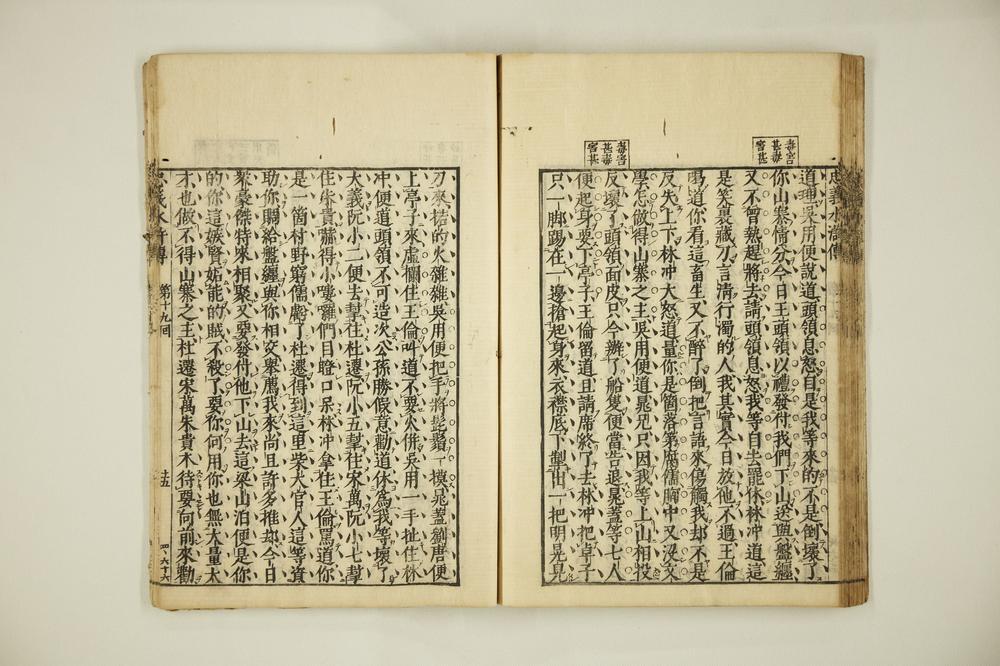 毒害
甚毒
害甚
毒害
甚毒
害甚
忠義水滸傳
道理吴用便說道頭領息怒自是我等來的不是倒壞了
你山寨情分今日王頭領以禮發付我們下山送與盤纏
又不曾熱趕將去請頭領息怒我等自去罷休林冲道這
是笑裏藏刀言清行濁的人我其實今日放他不過王倫
喝道你看這畜生又不醉了倒把言語來傷觸我却不是
反失上下林冲大怒道量你是箇落第腐儒胸中又沒文
學怎做得山寨之主吴用便道晁兄只因我等上山相投
反壞了頭領面皮只今辨了船隻便當告退晁蓋等七人
便起身要下亭子王倫留道且請席終了去林冲把卓子
只一脚踢在一邊搶起身來衣襟底下掣出一把明晃晃
刀來搭的火雜雜吴用便把手將髭鬚一摸晁蓋劉唐便
上亭子來虛攔住王倫叫道不要火併吴用一手扯住林
冲便道頭領不可造次公孫勝假意勸道休為我等壞了
大義阮小二便去幇住杜遷阮小五幇住宋萬阮小七幇
住朱貴嚇得小嘍囉們目瞪口呆林冲拿住王倫罵道你
是一箇村野窮儒虧了杜遷得到這里柴大官人這等資
助你賙給盤纏與你相交舉薦我來尚且許多推却今日
衆豪傑特來相聚又要發付他下山去這梁山泊便是你
的你這嫉賢妬能的賊不殺了要你何用你也無大量大
才也做不得山寨之主杜遷宋萬朱貴本待要向前來勸
忠義水滸傳
第十九回
四ノ六十六